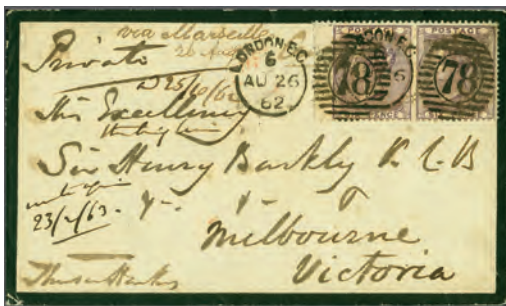 via Marseille
26 Aug
Private
LONDON E.C.
6
AU 26
62
POSTAGE
POSTAGE
78
78
6
25/10/62
His Excellency
Sir Henry Barkly K C B
23/2/63
&- &-
Melbourne
Victoria